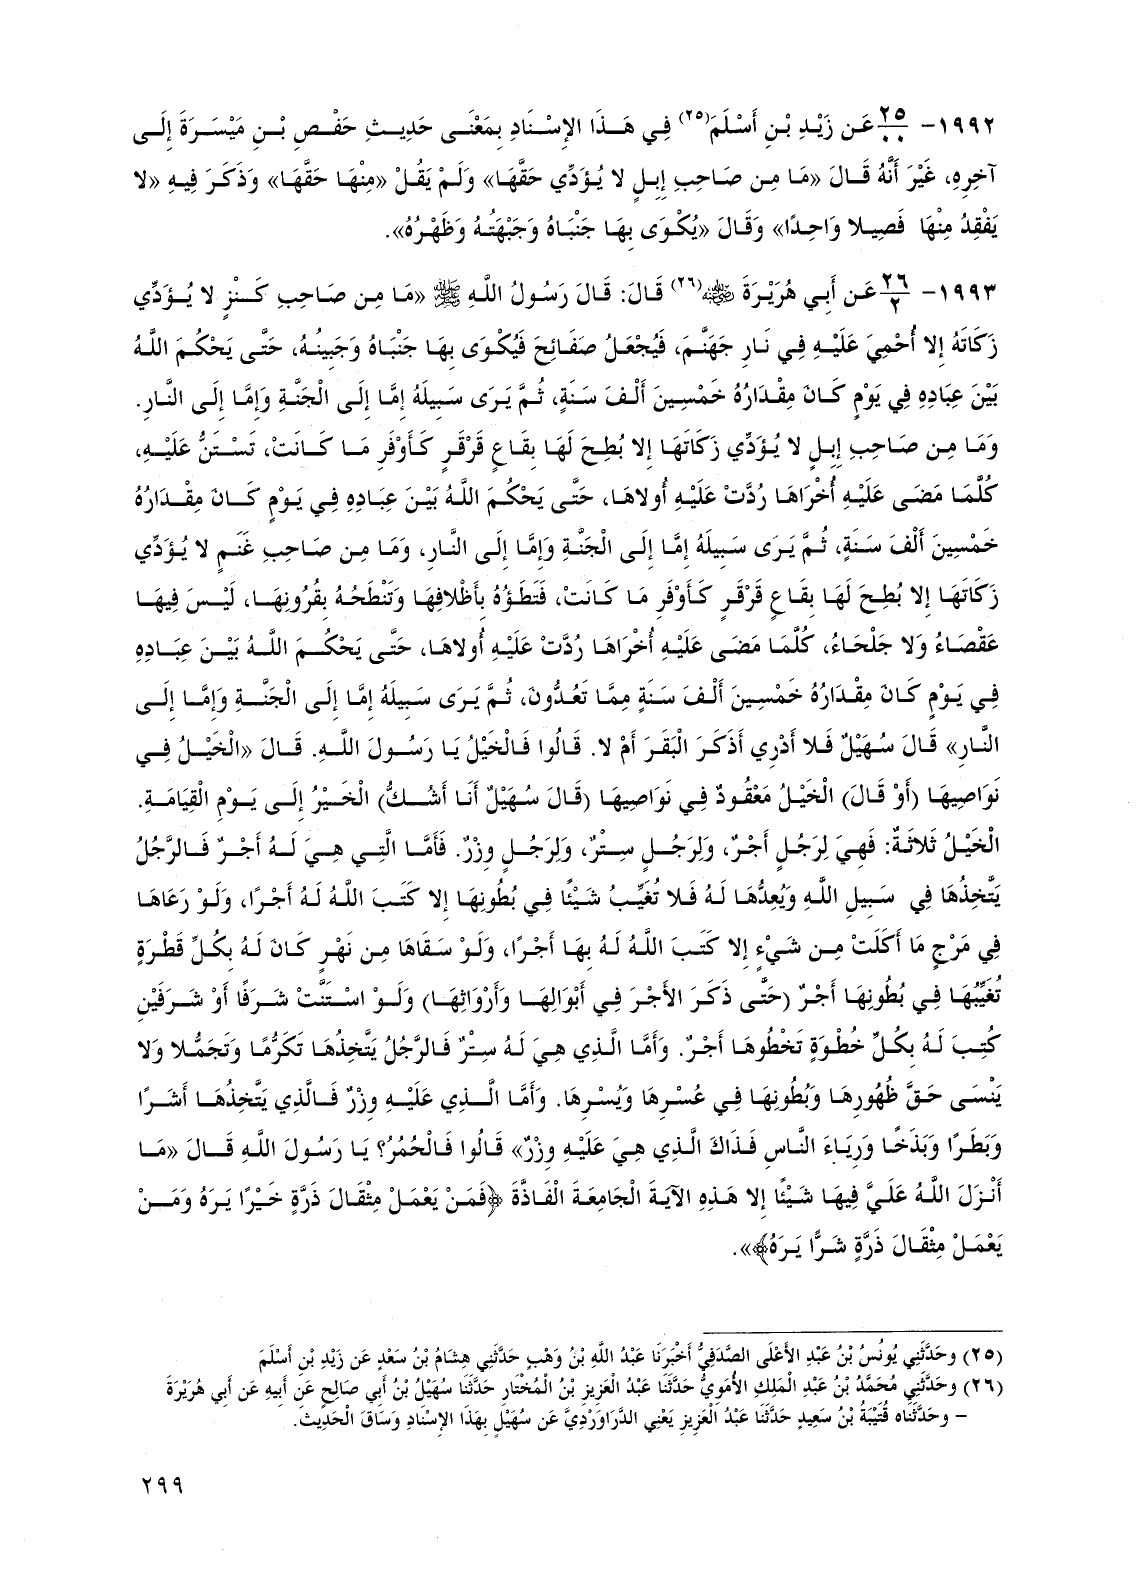 ١٩٩٢- ٢٥/٠٠ عَن زَيْدِ بْنِ أَسْلَمَ(٢٥) فِي هَذَا الإِسْنَادِ بِمَعْنَى حَدِيثِ حَفْصِ بْنِ مَيْسَرَةَ إِلَى
آخِرِهِ، غَيْرَ أَنَّهُ قَالَ «مَا مِن صَاحِبِ إِبِلٍ لا يُؤَدِّي حَقَّهَا» وَلَمْ يَقُلْ «مِنْهَا حَقَّهَا» وَذَكَرَ فِيهِ «لا
يَفْقِدُ مِنْهَا فَصِيلا وَاحِدًا» وَقَالَ «يُكْوَى بِهَا جَنْبَاهُ وَجَبْهَتُهُ وَظَهْرُهُ».
١٩٩٣- ٢٦/٢ عَن أَبِي هُرَيْرَةَ ﵁(٢٦) قَالَ: قَالَ رَسُولُ اللَّهِ ﷺ «مَا مِن صَاحِبِ كَنْزٍ لا يُؤَدِّي
زَكَاتَهُ إِلا أُحْمِيَ عَلَيْهِ فِي نَارِ جَهَنَّمَ، فَيُجْعَلُ صَفَائِحَ فَيُكْوَى بِهَا جَنْبَاهُ وَجَبِينُهُ، حَتَّى يَحْكُمَ اللَّهُ
بَيْنَ عِبَادِهِ فِي يَوْمٍ كَانَ مِقْدَارُهُ خَمْسِينَ أَلْفَ سَنَةٍ، ثُمَّ يَرَى سَبِيلَهُ إِمَّا إِلَى الْجَنَّةِ وَإِمَّا إِلَى النَّارِ.
وَمَا مِن صَاحِبِ إِبِلٍ لا يُؤَدِّي زَكَاتَهَا إِلا بُطِحَ لَهَا بِقَاعٍ قَرْقَرٍ كَأَوْفَرِ مَا كَانَتْ، تَسْتَنُّ عَلَيْهِ،
كُلَّمَا مَضَى عَلَيْهِ أُخْرَاهَا رُدَّتْ عَلَيْهِ أُولاهَا، حَتَّى يَحْكُمَ اللَّهُ بَيْنَ عِبَادِهِ فِي يَوْمٍ كَانَ مِقْدَارُهُ
خَمْسِينَ أَلْفَ سَنَةٍ، ثُمَّ يَرَى سَبِيلَهُ إِمَّا إِلَى الْجَنَّةِ وَإِمَّا إِلَى النَّارِ، وَمَا مِن صَاحِبِ غَنَمٍ لا يُؤَدِّي
زَكَاتَهَا إِلا بُطِحَ لَهَا بِقَاعٍ قَرْقَرٍ كَأَوْفَرِ مَا كَانَتْ، فَتَطَؤُهُ بِأَظْلافِهَا وَتَنْطَحُهُ بِقُرُونِهَا، لَيْسَ فِيهَا
عَقْصَاءُ وَلا جَلْحَاءُ، كُلَّمَا مَضَى عَلَيْهِ أُخْرَاهَا رُدَّتْ عَلَيْهِ أُولاهَا، حَتَّى يَحْكُمَ اللَّهُ بَيْنَ عِبَادِهِ
فِي يَوْمٍ كَانَ مِقْدَارُهُ خَمْسِينَ أَلْفَ سَنَةٍ مِمَّا تَعُدُّونَ، ثُمَّ يَرَى سَبِيلَهُ إِمَّا إِلَى الْجَنَّةِ وَإِمَّا إِلَى
النَّارِ» قَالَ سُهَيْلٌ فَلا أَدْرِي أَذَكَرَ الْبَقَرَ أَمْ لا. قَالُوا فَالْخَيْلُ يَا رَسُولَ اللَّهِ. قَالَ «الْخَيْلُ فِي
نَوَاصِيهَا (أَوْ قَالَ) الْخَيْلُ مَعْقُودٌ فِي نَوَاصِيهَا (قَالَ سُهَيْلٌ أَنَا أَشُكُّ) الْخَيْرُ إِلَى يَوْمِ الْقِيَامَةِ.
الْخَيْلُ ثَلاثَةٌ: فَهِيَ لِرَجُلٍ أَجْرٌ، وَلِرَجُلٍ سِتْرٌ، وَلِرَجُلٍ وِزْرٌ. فَأَمَّا الَّتِي هِيَ لَهُ أَجْرٌ فَالرَّجُلُ
يَتَّخِذُهَا فِي سَبِيلِ اللَّهِ وَيُعِدُّهَا لَهُ فَلا تُغَيِّبُ شَيْئًا فِي بُطُونِهَا إِلا كَتَبَ اللَّهُ لَهُ أَجْرًا، وَلَوْ رَعَاهَا
فِي مَرْجٍ مَا أَكَلَتْ مِن شَيْءٍ إِلا كَتَبَ اللَّهُ لَهُ بِهَا أَجْرًا، وَلَوْ سَقَاهَا مِن نَهْرٍ كَانَ لَهُ بِكُلِّ قَطْرَةٍ
تُغَيِّبُهَا فِي بُطُونِهَا أَجْرٌ (حَتَّى ذَكَرَ الأَجْرَ فِي أَبْوَالِهَا وَأَرْوَاثِهَا) وَلَوْ اسْتَنَّتْ شَرَفًا أَوْ شَرَفَيْنِ
كُتِبَ لَهُ بِكُلِّ خُطْوَةٍ تَخْطُوهَا أَجْرٌ. وَأَمَّا الَّذِي هِيَ لَهُ سِتْرٌ فَالرَّجُلُ يَتَّخِذُهَا تَكَرُّمًا وَتَجَمُّلا وَلا
يَنْسَى حَقَّ ظُهُورِهَا وَبُطُونِهَا فِي عُسْرِهَا وَيُسْرِهَا. وَأَمَّا الَّذِي عَلَيْهِ وِزْرٌ فَالَّذِي يَتَّخِذُهَا أَشَرًا
وَبَطَرًا وَبَذَخًا وَرِيَاءَ النَّاسِ فَذَاكَ الَّذِي هِيَ عَلَيْهِ وِزْرٌ» قَالُوا فَالْحُمُرُ؟ يَا رَسُولَ اللَّهِ قَالَ «مَا
أَنْزَلَ اللَّهُ عَلَيَّ فِيهَا شَيْئًا إِلا هَذِهِ الآيَةَ الْجَامِعَةَ الْفَاذَّةَ ﴿فَمَنْ يَعْمَلْ مِثْقَالَ ذَرَّةٍ خَيْرًا يَرَهُ وَمَنْ
يَعْمَلْ مِثْقَالَ ذَرَّةٍ شَرًّا يَرَهُ﴾».
(٢٥) وحَدَّثَنِي يُونُسُ بْنُ عَبْدِ الأَعْلَى الصَّدَفِيُّ أَخْبَرَنَا عَبْدُ اللَّهِ بْنُ وَهْبٍ حَدَّثَنِي هِشَامُ بْنُ سَعْدٍ عَن زَيْدِ بْنِ أَسْلَمَ
(٢٦) وحَدَّثَنِي مُحَمَّدُ بْنُ عَبْدِ الْمَلِكِ الأُمَوِيُّ حَدَّثَنَا عَبْدُ الْعَزِيزِ بْنُ الْمُخْتَارِ حَدَّثَنَا سُهَيْلُ بْنُ أَبِي صَالِحٍ عَن أَبِيهِ عَن أَبِي هُرَيْرَةَ
– وحَدَّثَنَاه قُتَيْبَةُ بْنُ سَعِيدٍ حَدَّثَنَا عَبْدُ الْعَزِيزِ يَعْنِي الدَّرَاوَرْدِيَّ عَن سُهَيْلٍ بِهَذَا الإِسْنَادِ وَسَاقَ الْحَدِيثَ.
٢٩٩